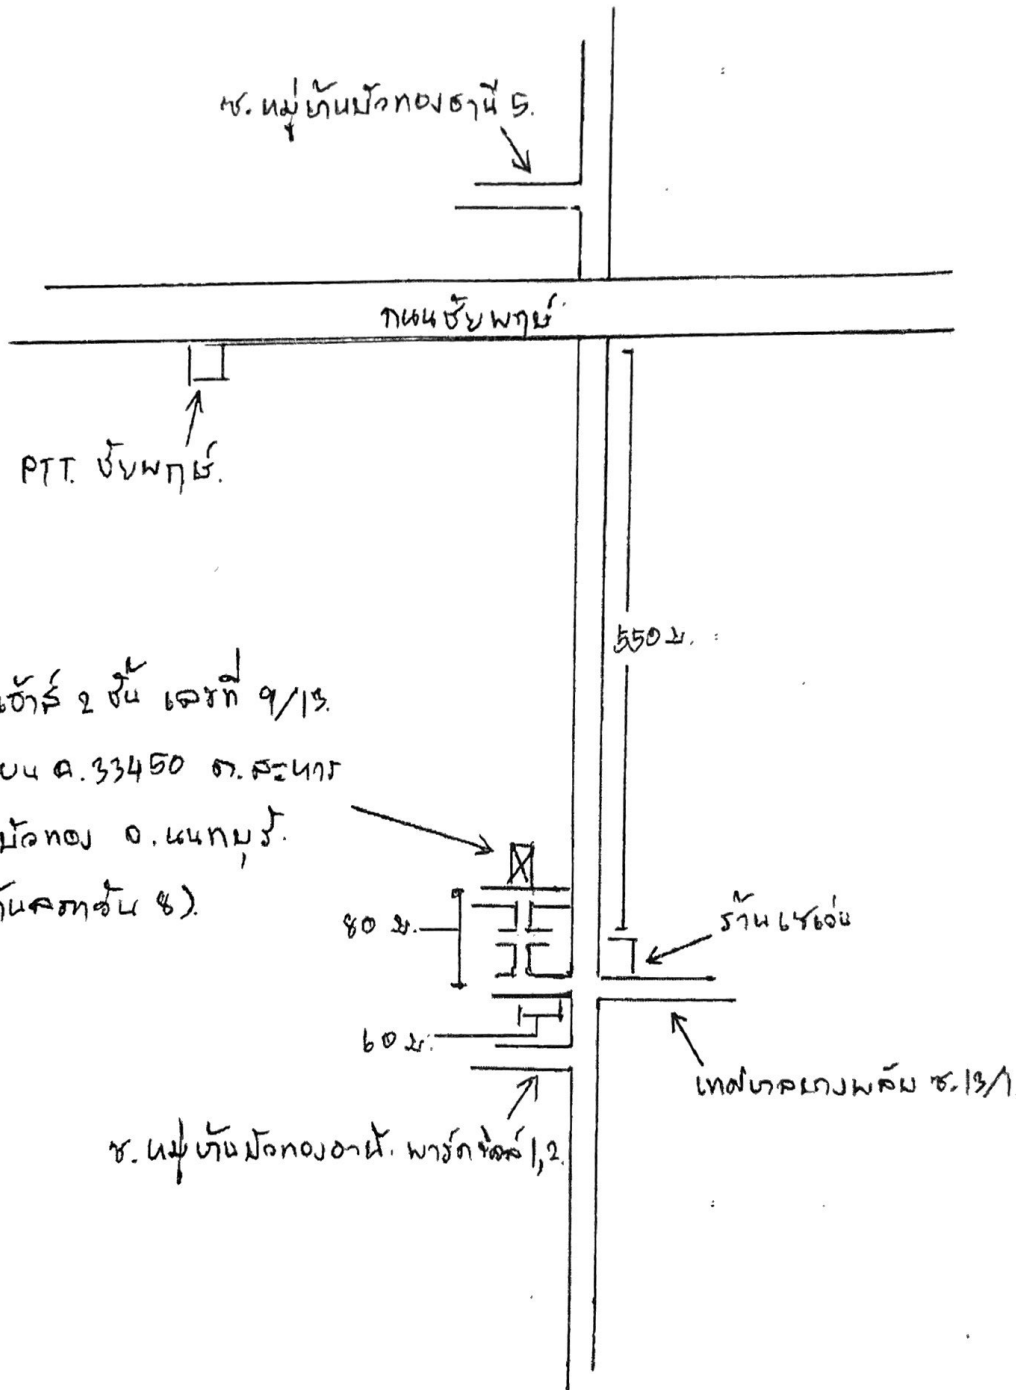 ซ.หมู่บ้านบัวทองธานี 5.
ถนนชัยพฤกษ์
PTT. ชัยพฤกษ์.
550 ม.
เฮ้าส์ 2 ชั้น เลขที่ 9/13.
ยน ฉ.33450 ต.ละหาร
บัวทอง จ.นนทบุรี.
8).
80 ม.
ร้าน
60 ม.
เทศบาลบางพลับ ซ.13/1
ซ.หมู่บ้านบัวทองธานี. พาร์ควิลล์ 1,2.